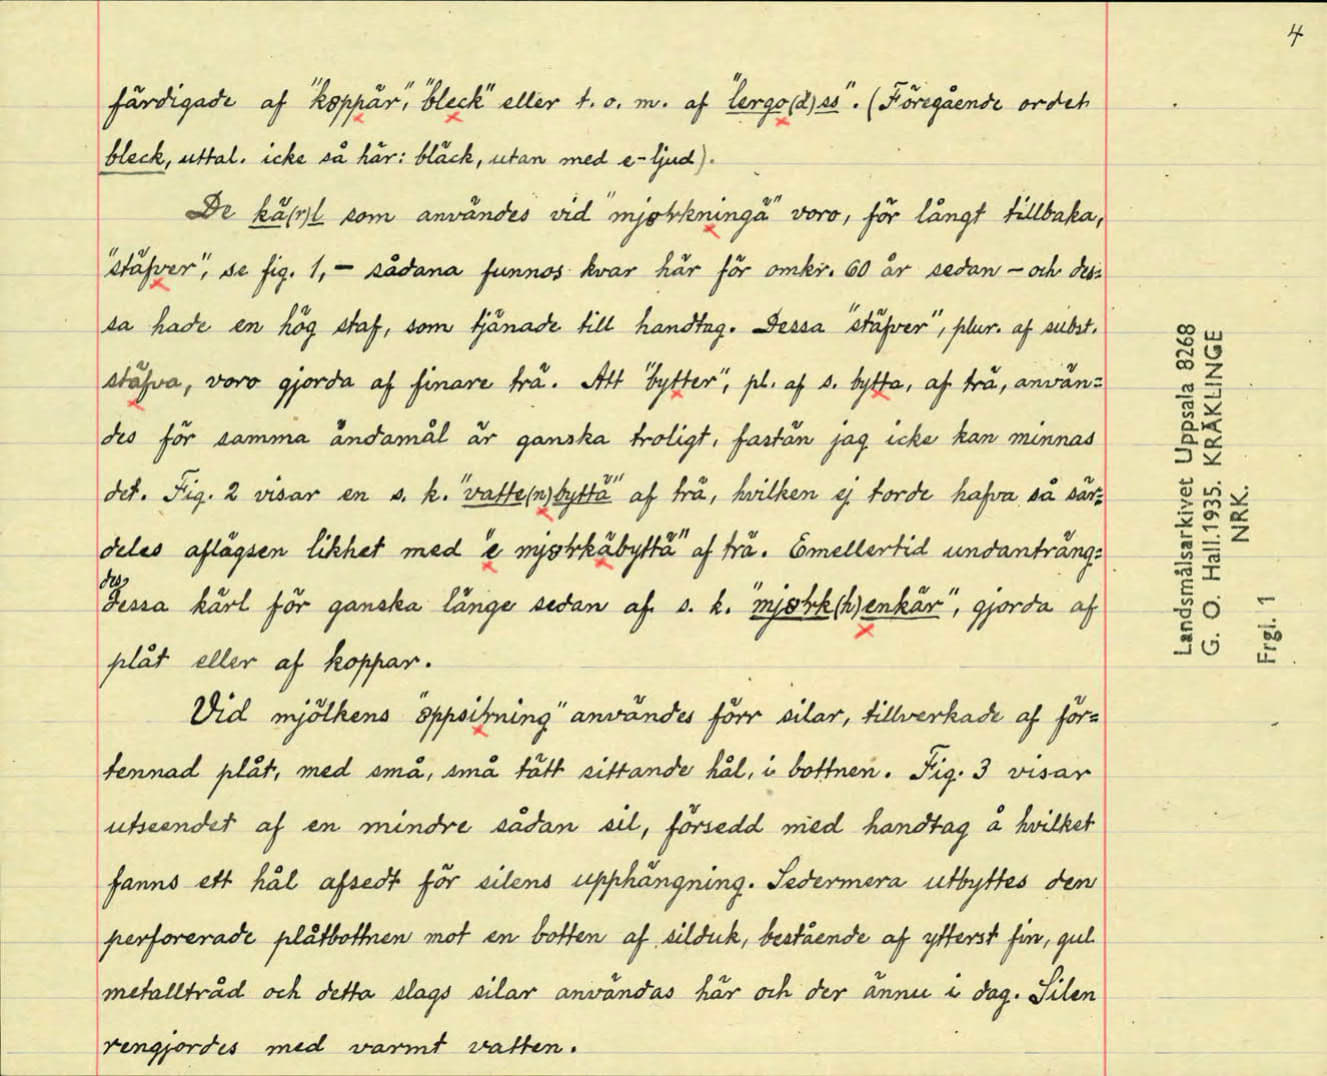 4
färdigade af "køppär", "bleck" eller t. o. m. af "lergo(d)ss". (Föregående ordet
bleck, uttal. icke så här: bläck, utan med e-ljud).
De kä(r)l som användes vid "mjøłkningä" voro, för långt tillbaka,
"stäfver", se fig. 1, – sådana funnos kvar här för omkr. 60 år sedan – och des=
sa hade en hög staf, som tjänade till handtag. Dessa "stäfver", plur. af subst.
stäfva, voro gjorda af finare trä. Att "bytter", pl. af s. bytta, af trä, använ=
des för samma ändamål är ganska troligt, fastän jag icke kan minnas
det. Fig. 2 visar en s. k. "vatte(n)byttä" af trä, hvilken ej torde hafva så sär=
deles aflägsen likhet med "e mjøłkäbyttä" af trä. Emellertid undanträng=
des dessa kärl för ganska länge sedan af s. k. "mjøłk(h)enkär", gjorda af
plåt eller af koppar.
Vid mjölkens "øppsiłning" användes förr silar, tillverkade af för=
tennad plåt, med små, små tätt sittande hål, i bottnen. Fig. 3 visar
utseendet af en mindre sådan sil, försedd med handtag å hvilket
fanns ett hål afsedt för silens upphängning. Sedermera utbyttes den
perforerade plåtbottnen mot en botten af silduk, bestående af ytterst fin, gul
metalltråd och detta slags silar användas här och der ännu i dag. Silen
rengjordes med varmt vatten.
Landsmålsarkivet Uppsala 8268
G. O. Hall. 1935. KRÄKLINGE
NRK.
Frgl. 1